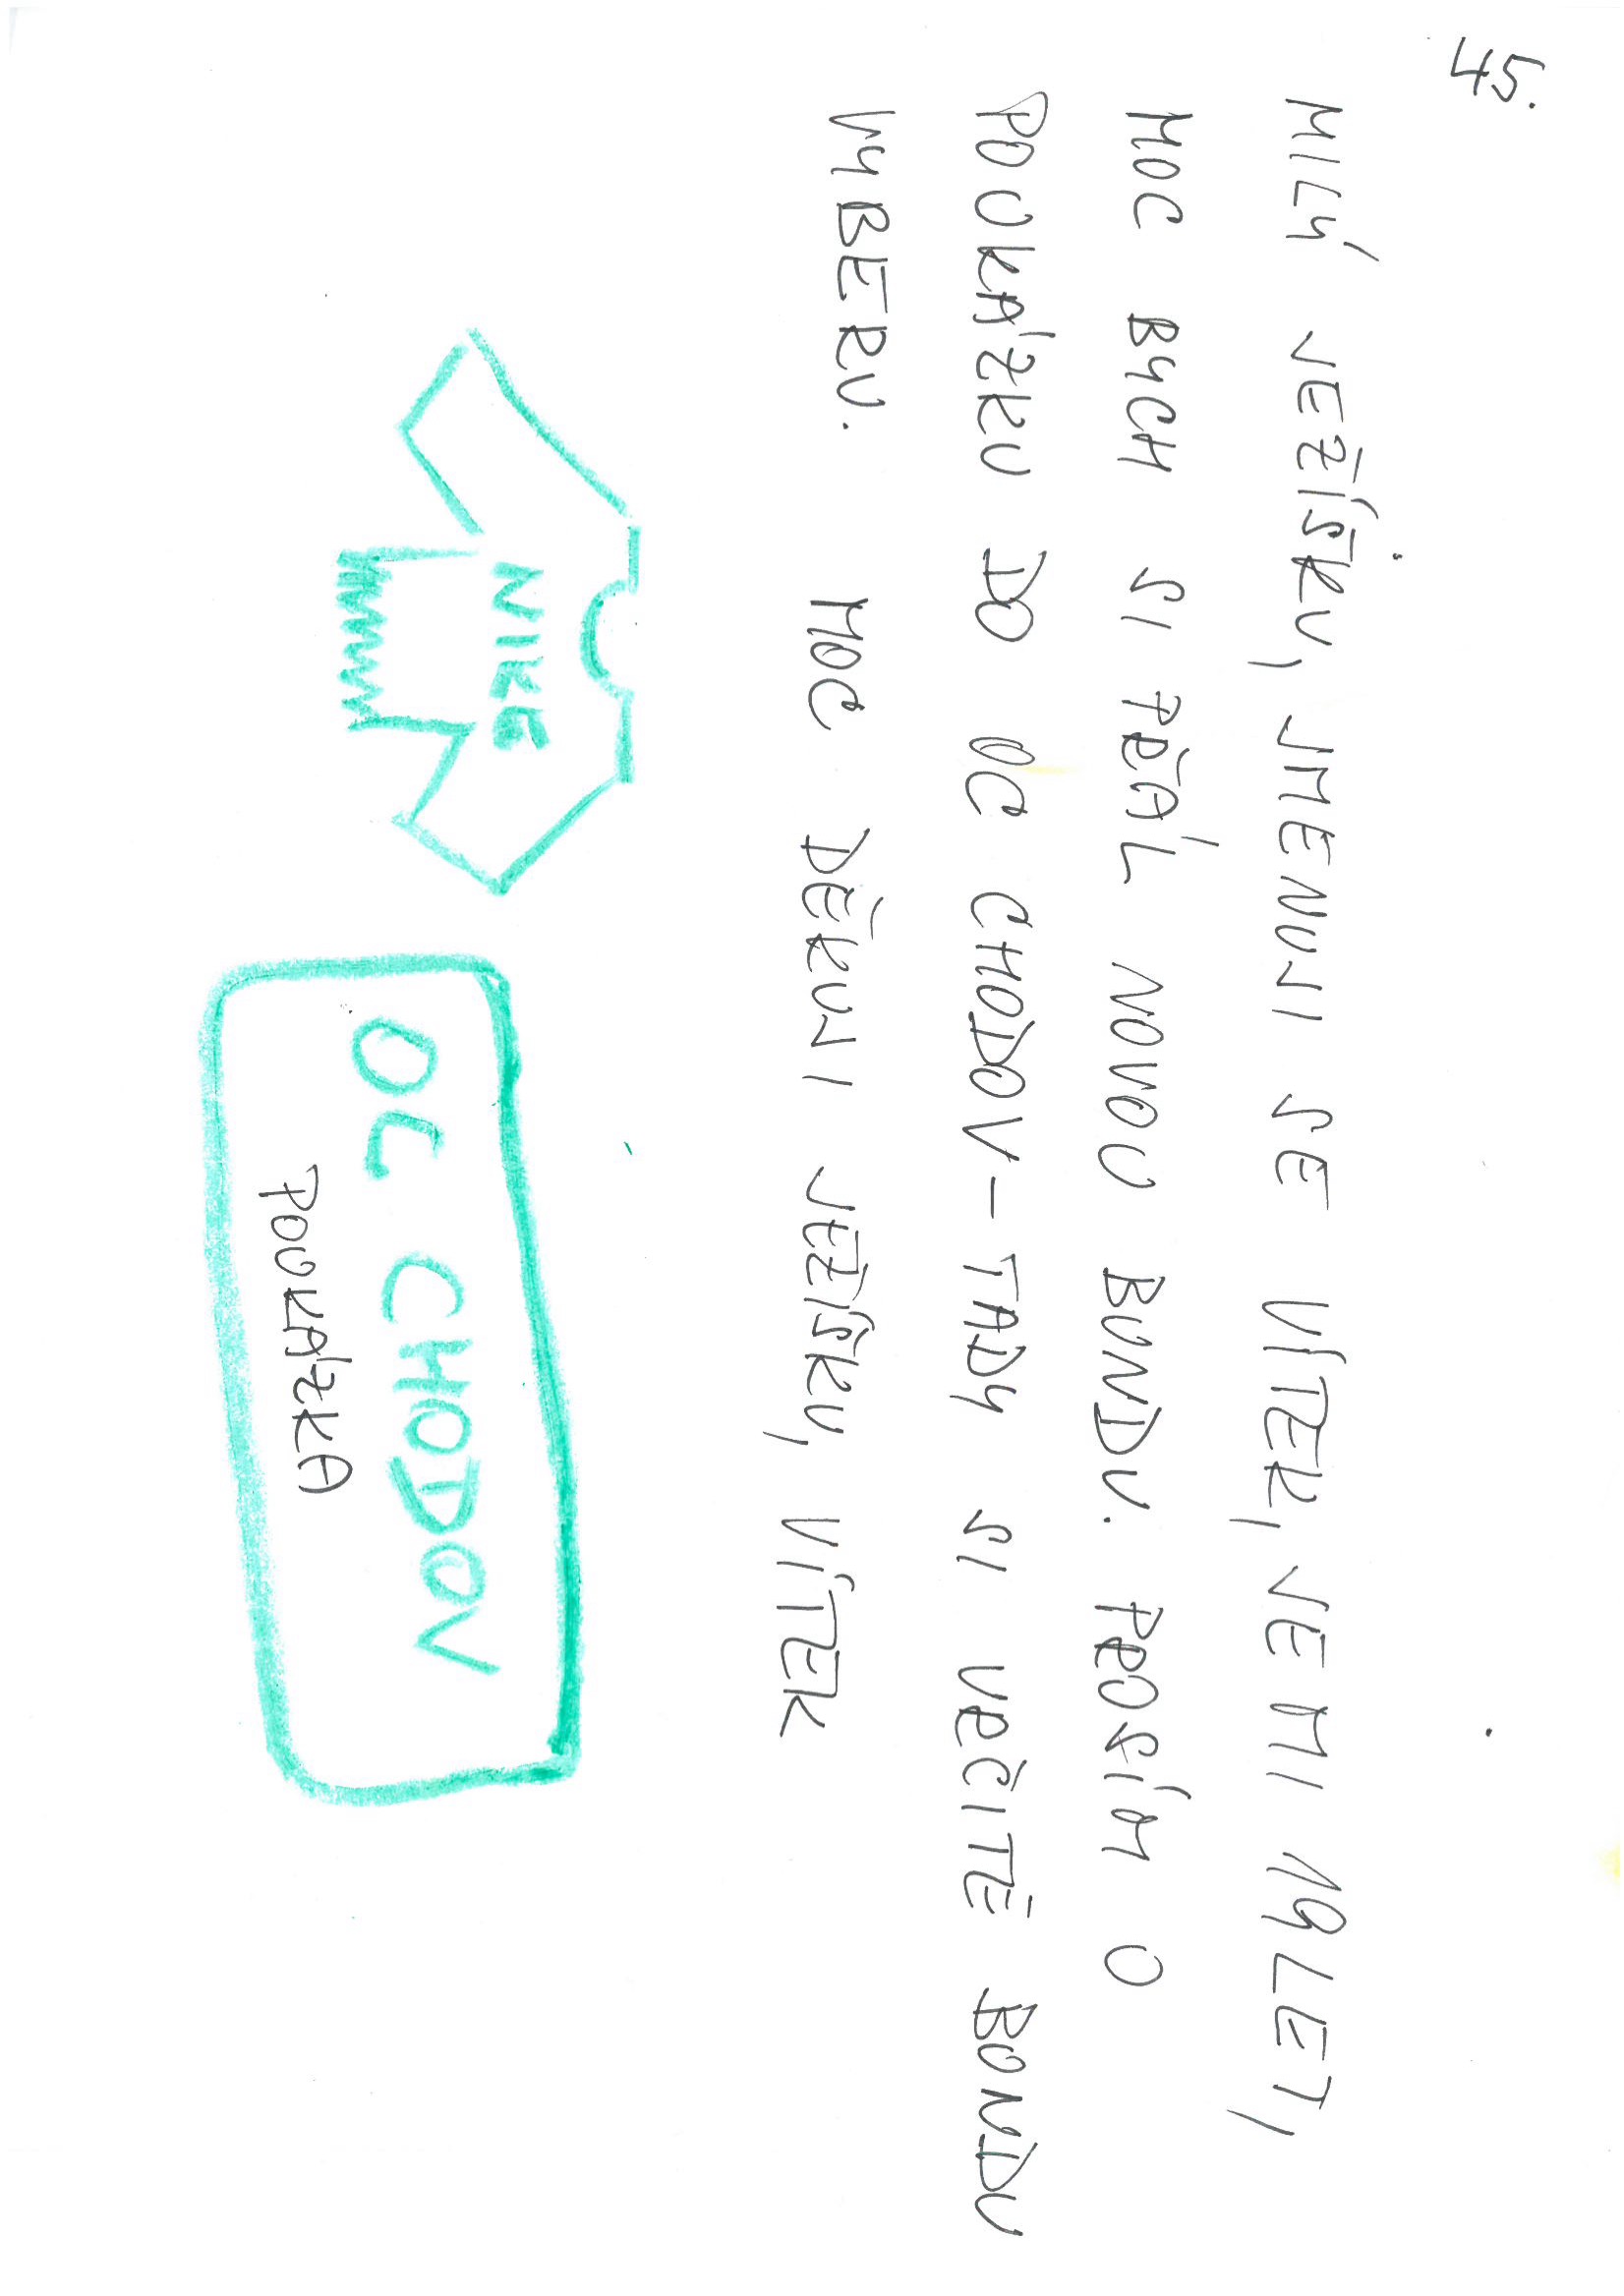 45.
MILÝ JEŽÍŠKU, JMENUJI SE VÍTEK, JE MI 19 LET,
MOC BYCH SI PŘÁL NOVOU BUNDU. PROSÍM O
POUKÁZKU DO OC CHODOV - TADY SI URČITĚ BUNDU
VYBERU.
MOC DĚKUJI JEŽÍŠKU, VÍTEK
NIKE
OC CHODOV
POUKÁZKA